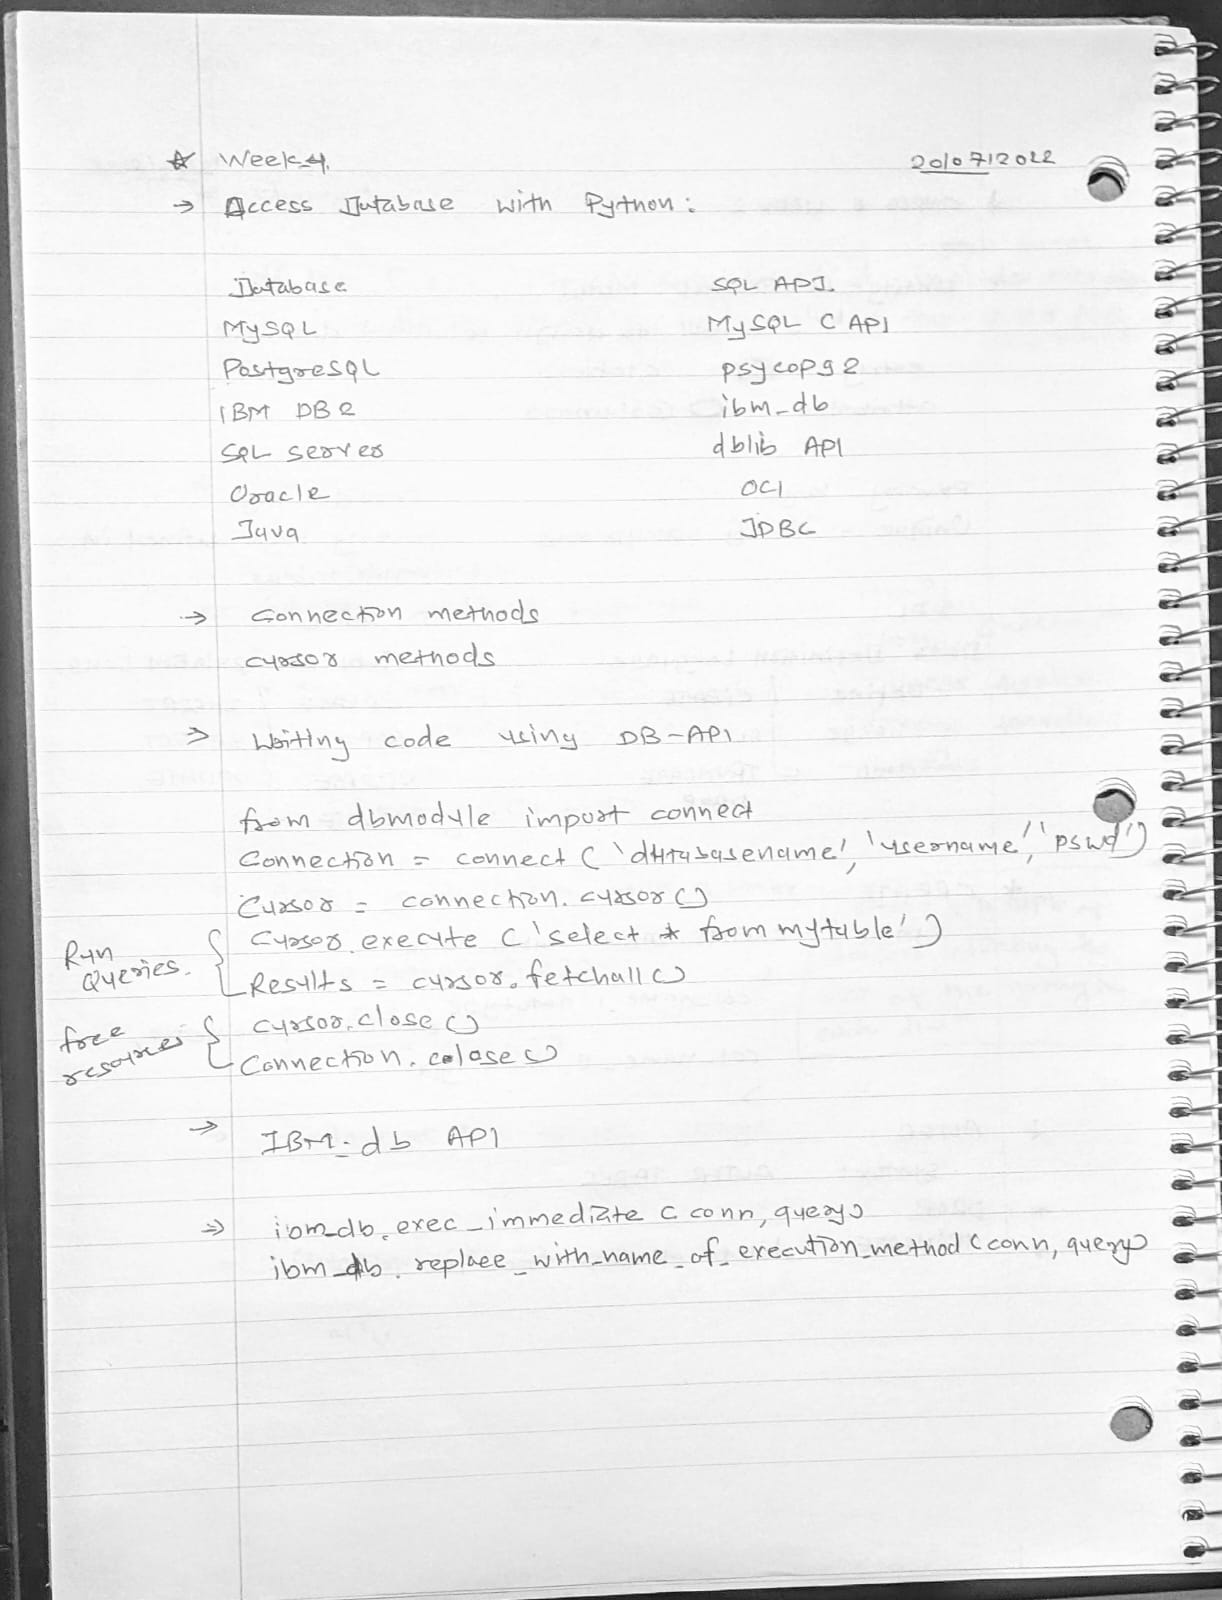 ☆ Week-4. 20/07/2022
→ Access Database with Python:
Database SQL API.
MySQL MySQL C API
PostgreSQL psycopg2
IBM DB2 ibm_db
SQL server dblib API
Oracle OCI
Java JDBC
→ Connection methods
cursor methods
→ Writing code using DB-API
from dbmodule import connect
Connection = connect ('databasename', 'username', 'pswd')
Cursor = connection.cursor()
Run Queries. { Cursor.execute ('select * from mytable')
Results = cursor.fetchall()
free resources { cursor.close()
Connection.colose()
→ IBM-db API
⇒ ibm_db.exec_immediate (conn, query)
ibm_db.replace_with_name_of_execution_method (conn, query)